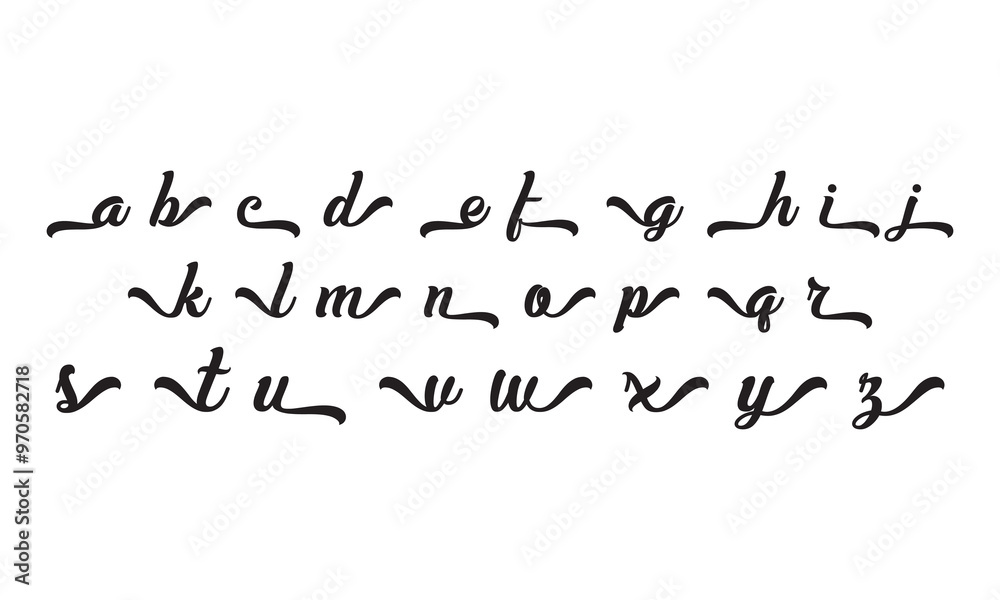 a b c d e f g h i j
k l m n o p q r
s t u v w x y z
Adobe Stock | #970582718